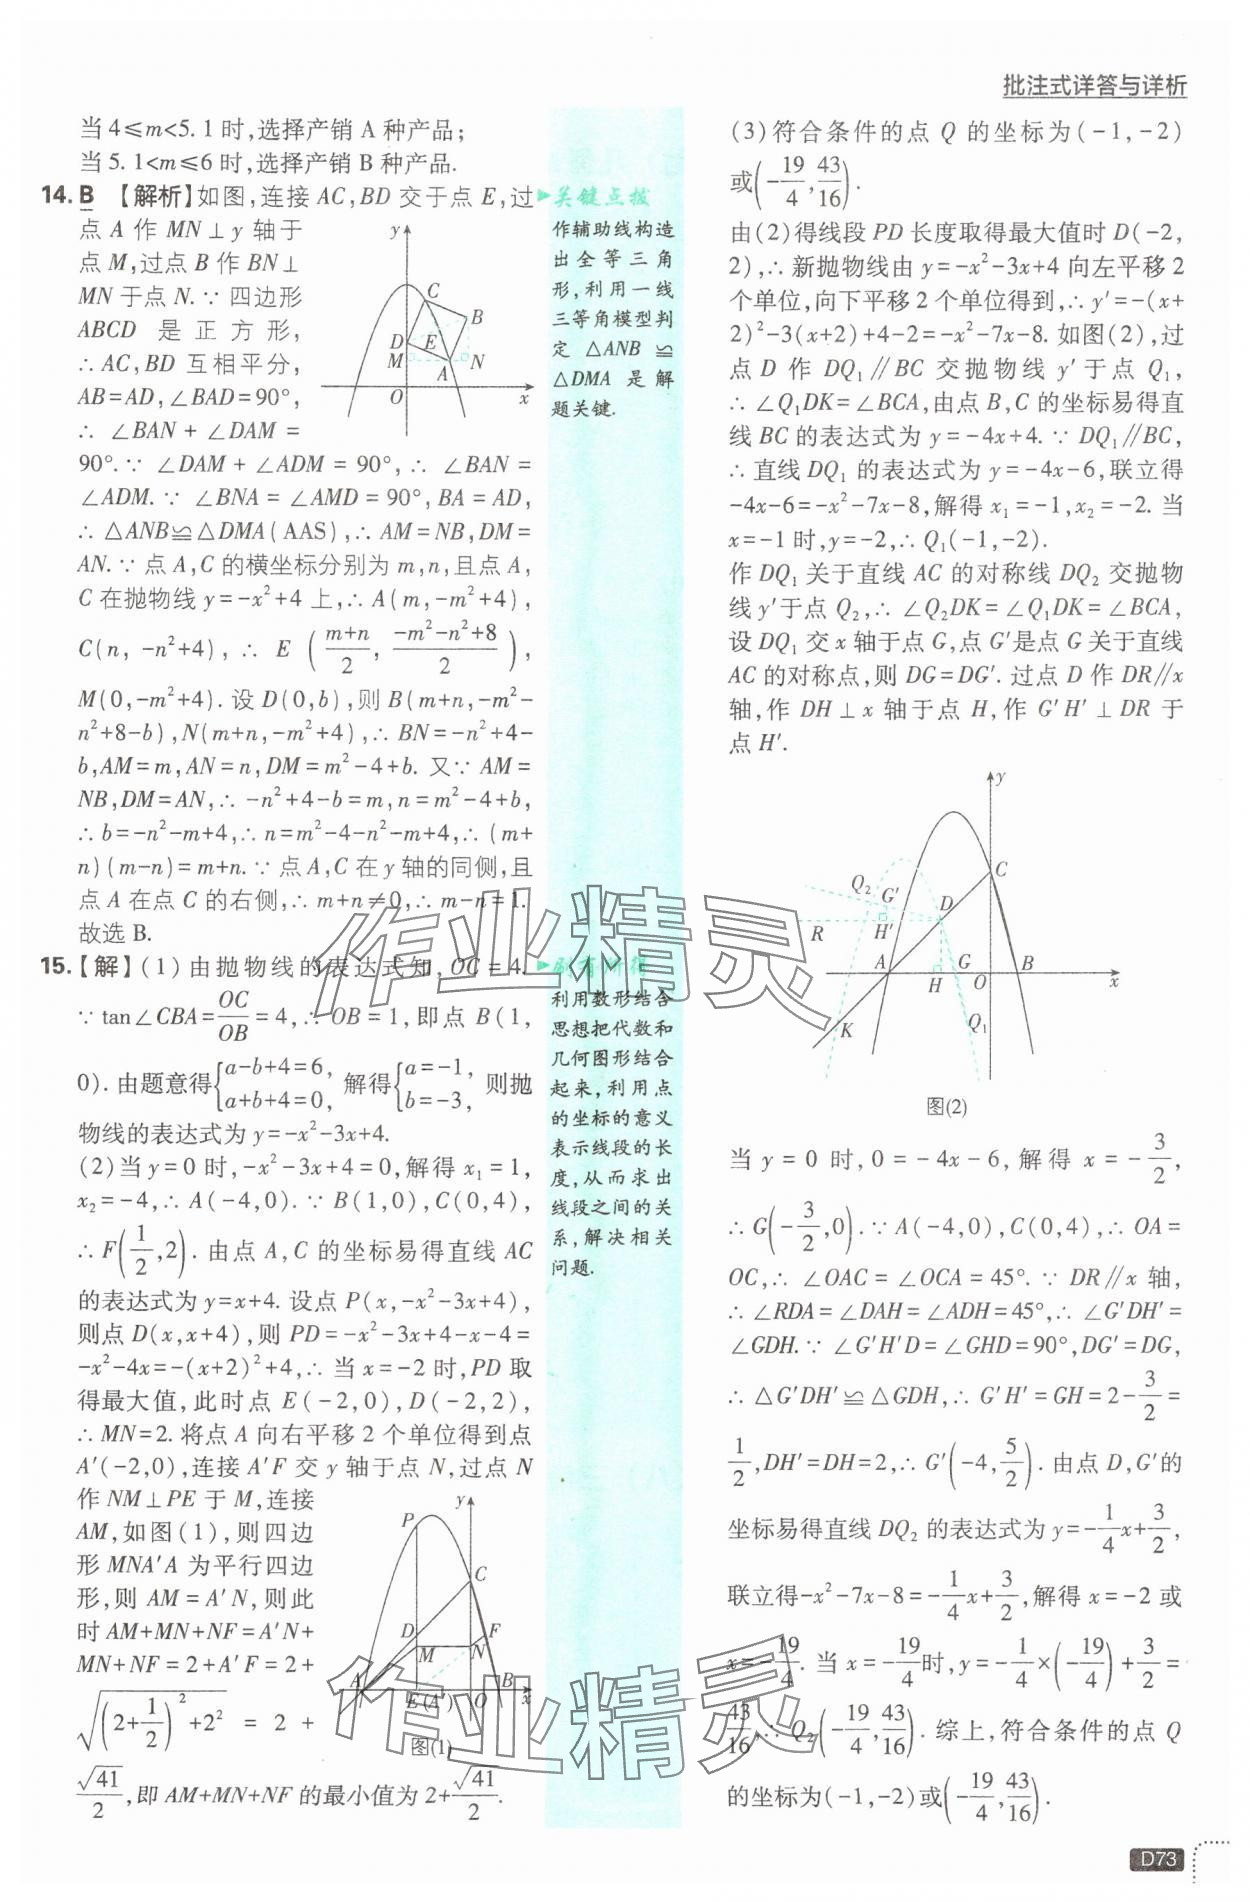 批注式详答与详析
当 4≤m<5.1 时,选择产销 A 种产品;
当 5.1<m≤6 时,选择产销 B 种产品.
14. B 【解析】如图,连接 AC,BD 交于点 E,过
点 A 作 MN⊥y 轴于
点 M,过点 B 作 BN⊥
MN 于点 N.∵ 四边形
ABCD 是正方形,
∴AC,BD 互相平分,
AB=AD,∠BAD=90°,
∴ ∠BAN+∠DAM=
90°.∵ ∠DAM+∠ADM=90°,∴ ∠BAN=
∠ADM.∵ ∠BNA=∠AMD=90°,BA=AD,
∴△ANB≌△DMA(AAS),∴AM=NB,DM=
AN.∵ 点 A,C 的横坐标分别为 m,n,且点 A,
C 在抛物线 y=-x²+4 上,∴A(m,-m²+4),
C(n,-n²+4),∴ E((m+n)/2,(-m²-n²+8)/2),
M(0,-m²+4).设 D(0,b),则 B(m+n,-m²-
n²+8-b),N(m+n,-m²+4),∴BN=-n²+4-
b,AM=m,AN=n,DM=m²-4+b.又∵ AM=
NB,DM=AN,∴-n²+4-b=m,n=m²-4+b,
∴b=-n²-m+4,∴n=m²-4-n²-m+4,∴(m+
n)(m-n)=m+n.∵ 点 A,C 在 y 轴的同侧,且
点 A 在点 C 的右侧,∴m+n≠0,∴m-n=1.
故选 B.
y
C
B
D
E
M
N
A
O
x
15.【解】(1)由抛物线的表达式知,OC=4.
∵tan∠CBA=OC/OB=4,∴OB=1,即点 B(1,
0).由题意得{a-b+4=6, a+b+4=0, 解得{a=-1, b=-3, 则抛
物线的表达式为 y=-x²-3x+4.
(2)当 y=0 时,-x²-3x+4=0,解得 x₁=1,
x₂=-4,∴A(-4,0).∵B(1,0),C(0,4),
∴F(1/2,2).由点 A,C 的坐标易得直线 AC
的表达式为 y=x+4.设点 P(x,-x²-3x+4),
则点 D(x,x+4),则 PD=-x²-3x+4-x-4=
-x²-4x=-(x+2)²+4,∴当 x=-2 时,PD 取
得最大值,此时点 E(-2,0),D(-2,2),
∴MN=2.将点 A 向右平移 2 个单位得到点
A′(-2,0),连接 A′F 交 y 轴于点 N,过点 N
作 NM⊥PE 于 M,连接
AM,如图(1),则四边
形 MNA′A 为平行四边
形,则 AM=A′N,则此
时 AM+MN+NF=A′N+
MN+NF=2+A′F=2+
√((2+1/2)²+2²)=2+
√41/2,即 AM+MN+NF 的最小值为 2+√41/2.
y
P
C
D
F
M
N
A
B
E(A′)
O
x
图(1)
关键点拨
作辅助线构造
出全等三角
形,利用一线
三等角模型判
定△ANB≌
△DMA是解
题关键.
刷有所得
利用数形结合
思想把代数和
几何图形结合
起来,利用点
的坐标的意义
表示线段的长
度,从而求出
线段之间的关
系,解决相关
问题.
(3)符合条件的点 Q 的坐标为(-1,-2)
或(-19/4,43/16).
由(2)得线段 PD 长度取得最大值时 D(-2,
2),∴新抛物线由 y=-x²-3x+4 向左平移 2
个单位,向下平移 2 个单位得到,∴y′=-(x+
2)²-3(x+2)+4-2=-x²-7x-8.如图(2),过
点 D 作 DQ₁∥BC 交抛物线 y′于点 Q₁,
∴∠Q₁DK=∠BCA,由点 B,C 的坐标易得直
线 BC 的表达式为 y=-4x+4.∵ DQ₁∥BC,
∴直线 DQ₁ 的表达式为 y=-4x-6,联立得
-4x-6=-x²-7x-8,解得 x₁=-1,x₂=-2.当
x=-1 时,y=-2,∴Q₁(-1,-2).
作 DQ₁ 关于直线 AC 的对称线 DQ₂ 交抛物
线 y′于点 Q₂,∴∠Q₂DK=∠Q₁DK=∠BCA,
设 DQ₁ 交 x 轴于点 G,点 G′是点 G 关于直线
AC 的对称点,则 DG=DG′.过点 D 作 DR∥x
轴,作 DH⊥x 轴于点 H,作 G′H′⊥DR 于
点 H′.
y
C
Q₂
G′
D
R
H′
A
G
B
H
O
x
K
Q₁
图(2)
当 y=0 时,0=-4x-6,解得 x=-3/2,
∴G(-3/2,0).∵A(-4,0),C(0,4),∴OA=
OC,∴∠OAC=∠OCA=45°.∵ DR∥x 轴,
∴∠RDA=∠DAH=∠ADH=45°,∴∠G′DH′=
∠GDH.∵∠G′H′D=∠GHD=90°,DG′=DG,
∴△G′DH′≌△GDH,∴G′H′=GH=2-3/2=
1/2,DH′=DH=2,∴G′(-4,5/2).由点 D,G′的
坐标易得直线 DQ₂ 的表达式为 y=-1/4x+3/2,
联立得-x²-7x-8=-1/4x+3/2,解得 x=-2 或
x=-19/4.当 x=-19/4时,y=-1/4×(-19/4)+3/2=
43/16,∴Q₂(-19/4,43/16).综上,符合条件的点 Q
的坐标为(-1,-2)或(-19/4,43/16).
作业精灵
作业精灵
D73